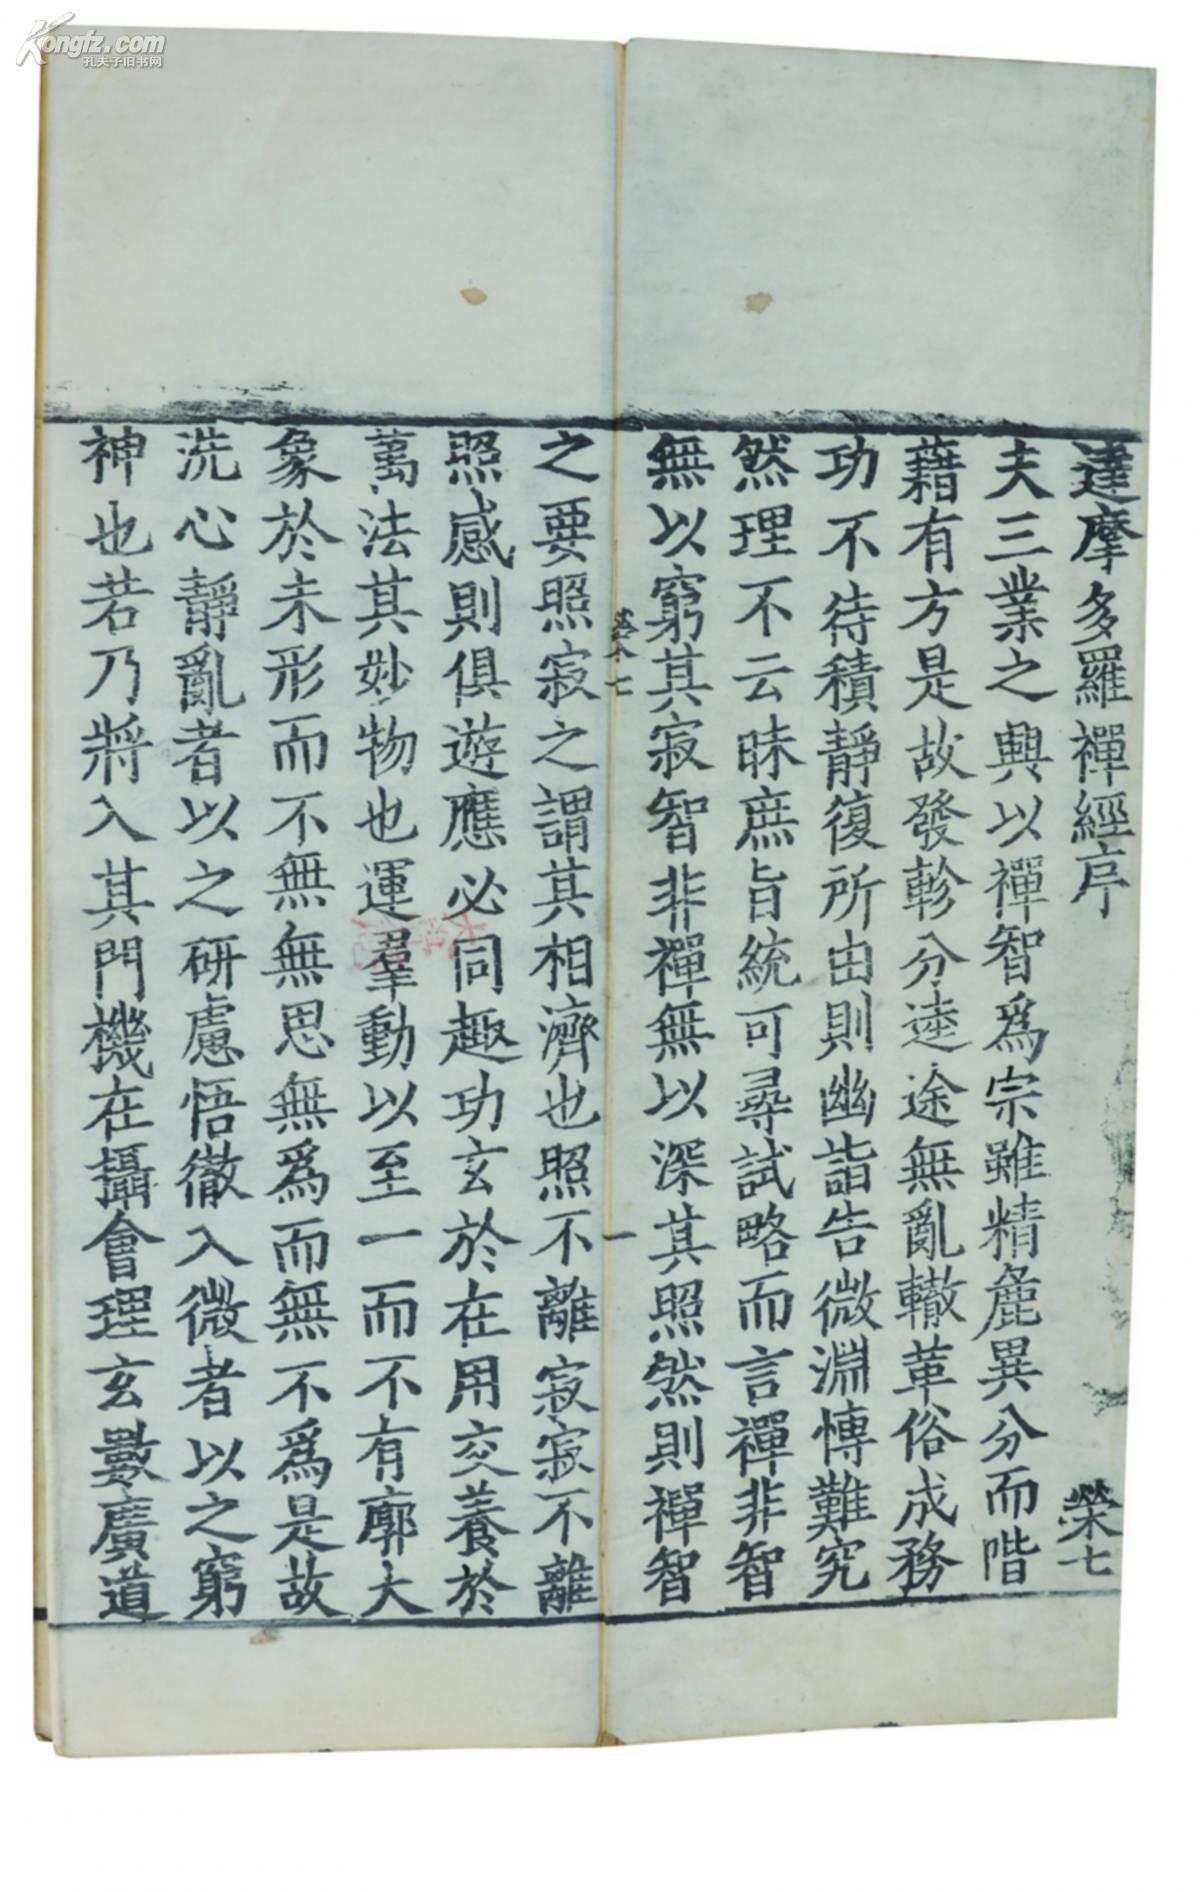 Kongfz.com
孔夫子旧书网
達摩多羅禪經序
榮七
夫三業之興以禪智爲宗雖精麁異分而階
藉有方是故發軫分逵途無亂轍革俗成務
功不待積靜復所由則幽詣告微淵慱難究
然理不云昧庶旨統可尋試略而言禪非智
無以窮其寂智非禪無以深其照然則禪智
榮七
一
之要照寂之謂其相濟也照不離寂寂不離
照感則俱遊應必同趣功玄於在用交養於
萬法其妙物也運羣動以至一而不有廓大
象於未形而不無無思無爲而無不爲是故
洗心靜亂者以之研慮悟徹入微者以之窮
神也若乃將入其門機在攝會理玄數廣道